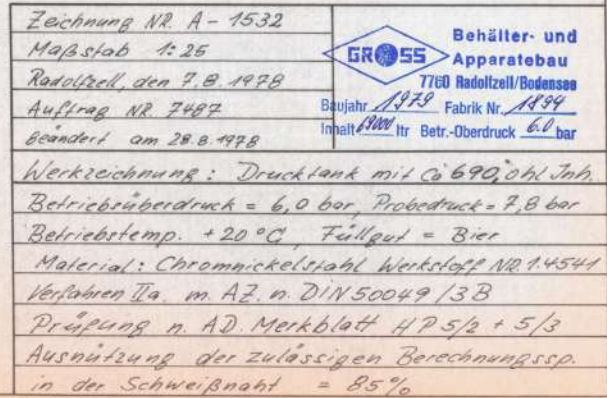 Zeichnung NR. A-1532
Maßstab 1:25
Radolfzell, den 7.8.1978
Auftrag NR. 7487
Geändert am 28.8.1978
GROSS
Behälter- und
Apparatebau
7760 Radolfzell/Bodensee
Baujahr 1979 Fabrik Nr. 1899
Inhalt 69000 ltr Betr.-Oberdruck 6.0 bar
Werkzeichnung: Drucktank mit Ca 690,0hl Jnh.
Betriebsüberdruck = 6,0 bar, Probedruck = 7,8 bar
Betriebstemp. +20°C, Füllgut = Bier
Material: Chromnickelstahl Werkstoff NR. 1.4541
Verfahren IIa. m. AZ. n. DIN 50049 /3B
Prüfung n. AD. Merkblatt HP 5/2 + 5/3
Ausnützung der zulässigen Berechnungssp.
in der Schweißnaht = 85%